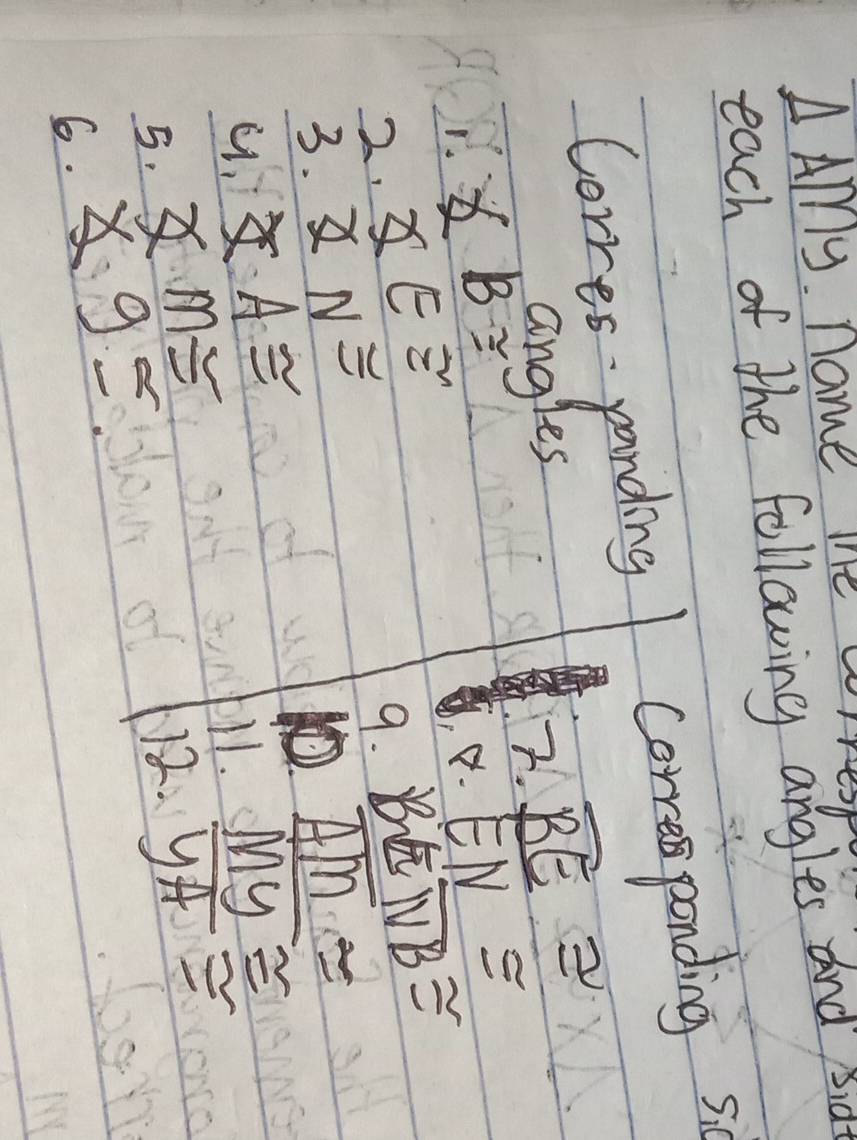 Δ AMy. Name the
each of the following angles and
Corres-ponding
angles
1. ∡ B ≅
2. ∡ E ≅
3. ∡ N ≅
4. ∡ A ≅
5. ∡ M ≅
6. ∡ y ≅
Corresponding
7. BE ≅
8. EN ≅
9. NB ≅
10. AM ≅
11. My ≅
12. yA ≅